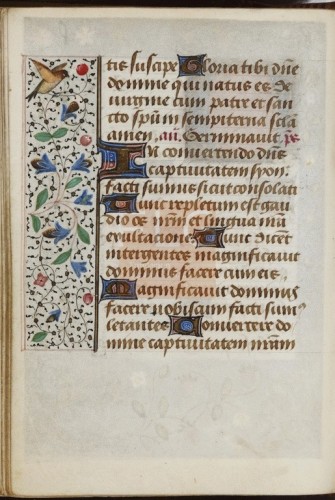 tis suscipe Gloria tibi dñe
domine qui natus es de
virgine cum patre et san
cto spũ in sempiterna secla
amen. añ. Germinavit. ps
In convertendo dñs
captivitatem syon.
facti sumus sicut consolati
Tunc repletum est gau
dio os nrm et lingua nrã
exultacione Tunc dicent
inter gentes magnificavit
dominus facere cum eis.
Magnificavit dominus
facere nobiscum facti sum⁹
letantes Convertere do
mine captivitatem nrãm